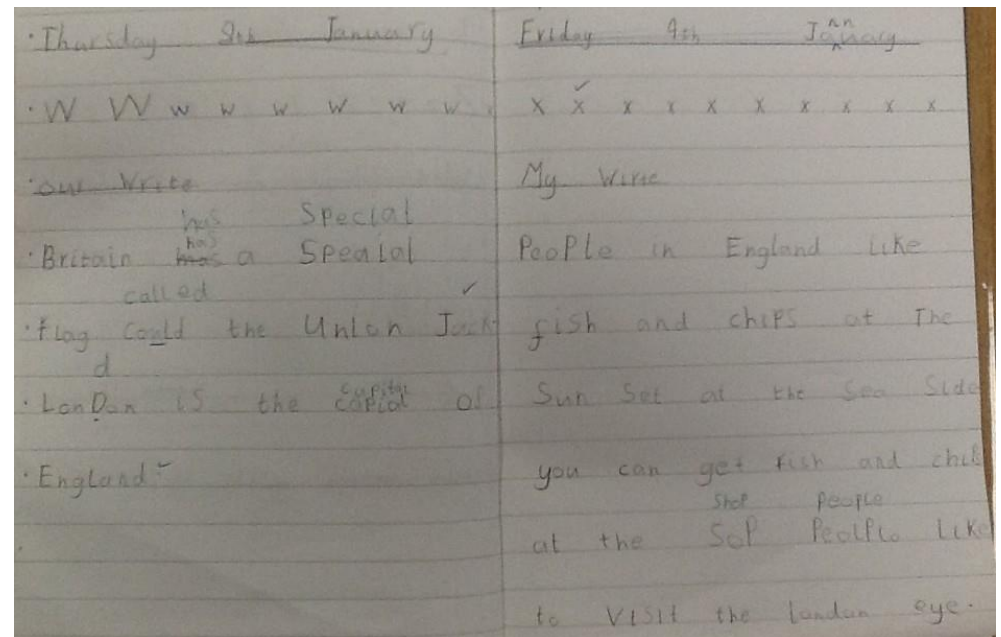 Thursday 8th January
W W w w w w w w
our Write
has Special
has
Britain a Spealal
called
flag could the Union Jack
d
LonDon is the capital of
England
Friday 9th January
x x x x x x x x x x
My Write
PeoPle in England like
fish and chips at The
Sun Set at the Sea Side
you can get fish and
Shop people
at the SoP like
to visit the london eye.